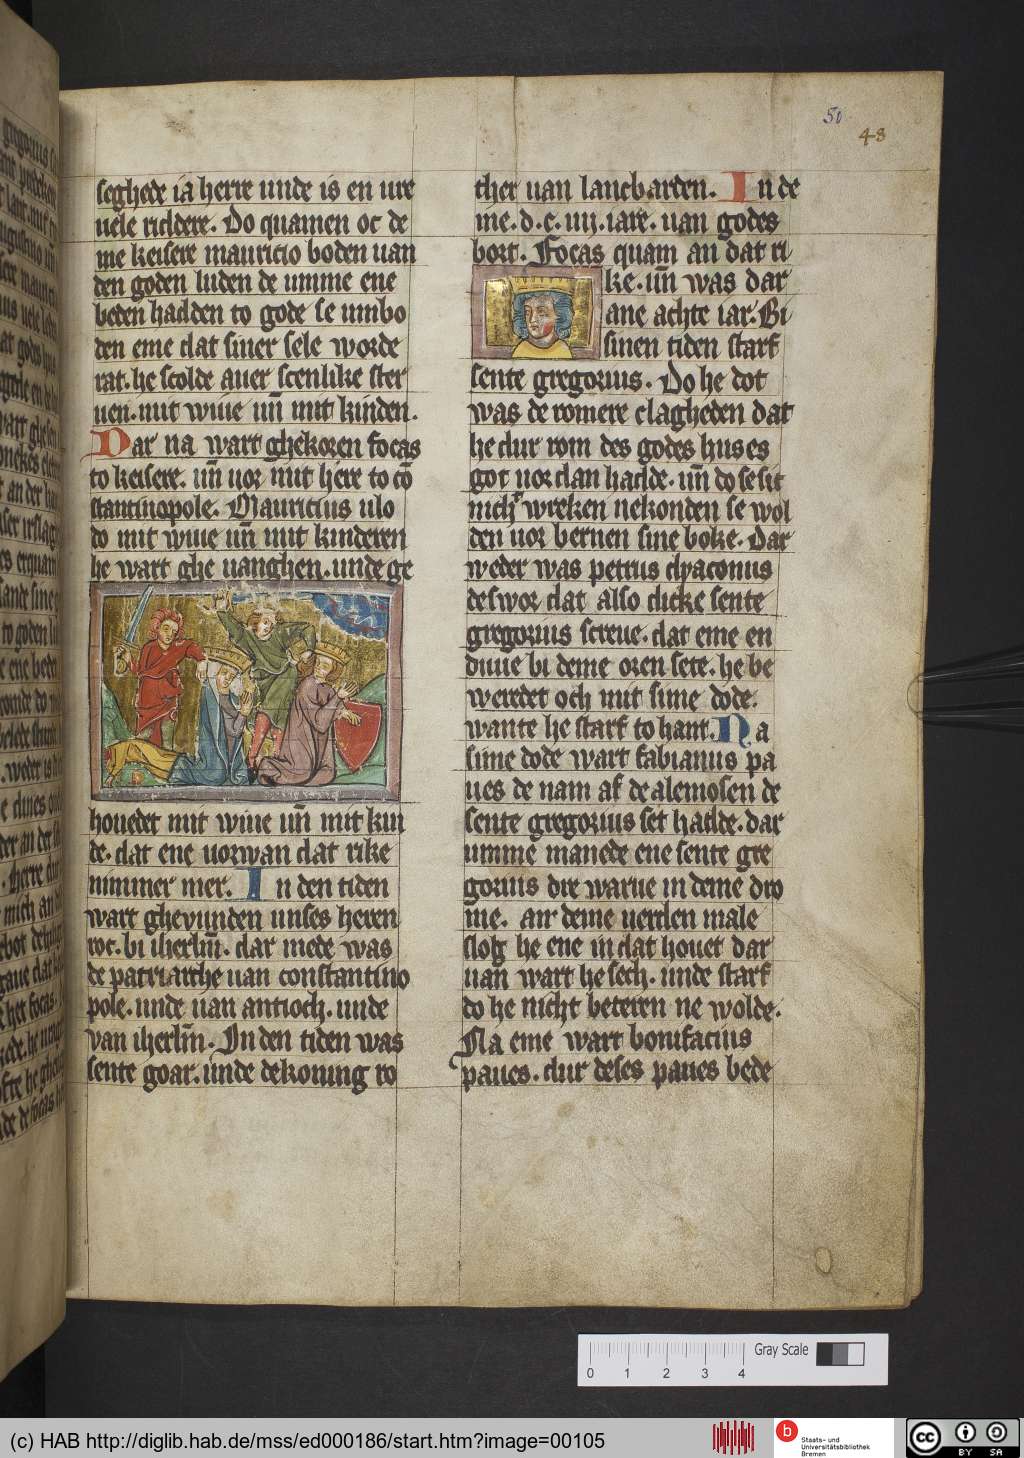 50
48
seghede ia herre unde is en ure
uele richtere. Do quamen oc de
me keisere mauricio boden uan
den goden luden de umme ene
beden hadden to gode se unbo
den eme dat siner sele worde
rat. he scolde auer scenlike ster
uen. mit wiue uñ mit kinden.
Dar na wart ghekoren focas
to keisere. uñ uor mit here to cō
stantinopole. Mauricius ulo
do mit wiue uñ mit kinderen
he wart ghe uanghen. unde ge
houedet mit wiue uñ mit kin
de. dat ene uorwan dat rike
nimmer mer. In den tiden
wart gheuunden unses heren
roc. bi iherlm̄. dar mede was
de patriarche uan constantino
pole. unde uan antioch. unde
van iherlm̄. In den tiden was
sente goar. unde de koning ro
ther uan lancbarden. In de
me. d. c. iiij. iare. uan godes
bort. Focas quam an dat ri
ke. uñ was dar
ane achte iar. Bi
sinen tiden starf
sente gregorius. Do he dot
was de romere clagheden dat
he dur rom des godes huses
got uor dan hadde. uñ do se sit
nicht wreken nekonden se wol
den uor bernen sine boke. Dar
weder was petrus dyaconus
de swor dat also dicke sente
gregorius screue. dat eme en
duue bi deme oren sete. he be
werdet och mit sime dode.
wante he starf to hant. Na
sime dode wart fabianus pa
ues de nam af de alemosen de
sente gregorius set hadde. dar
umme manede ene sente gre
gorius dre warue in deme dro
me. an deme uerden male
sloh he ene in dat houet dar
uan wart he sech. unde starf
do he nicht beteren ne wolde.
Na eme wart bonifacius
paues. dur deses paues bede
Gray Scale
0 1 2 3 4
(c) HAB http://diglib.hab.de/mss/ed000186/start.htm?image=00105
b
Staats- und
Universitätsbibliothek
Bremen
cc
BY SA